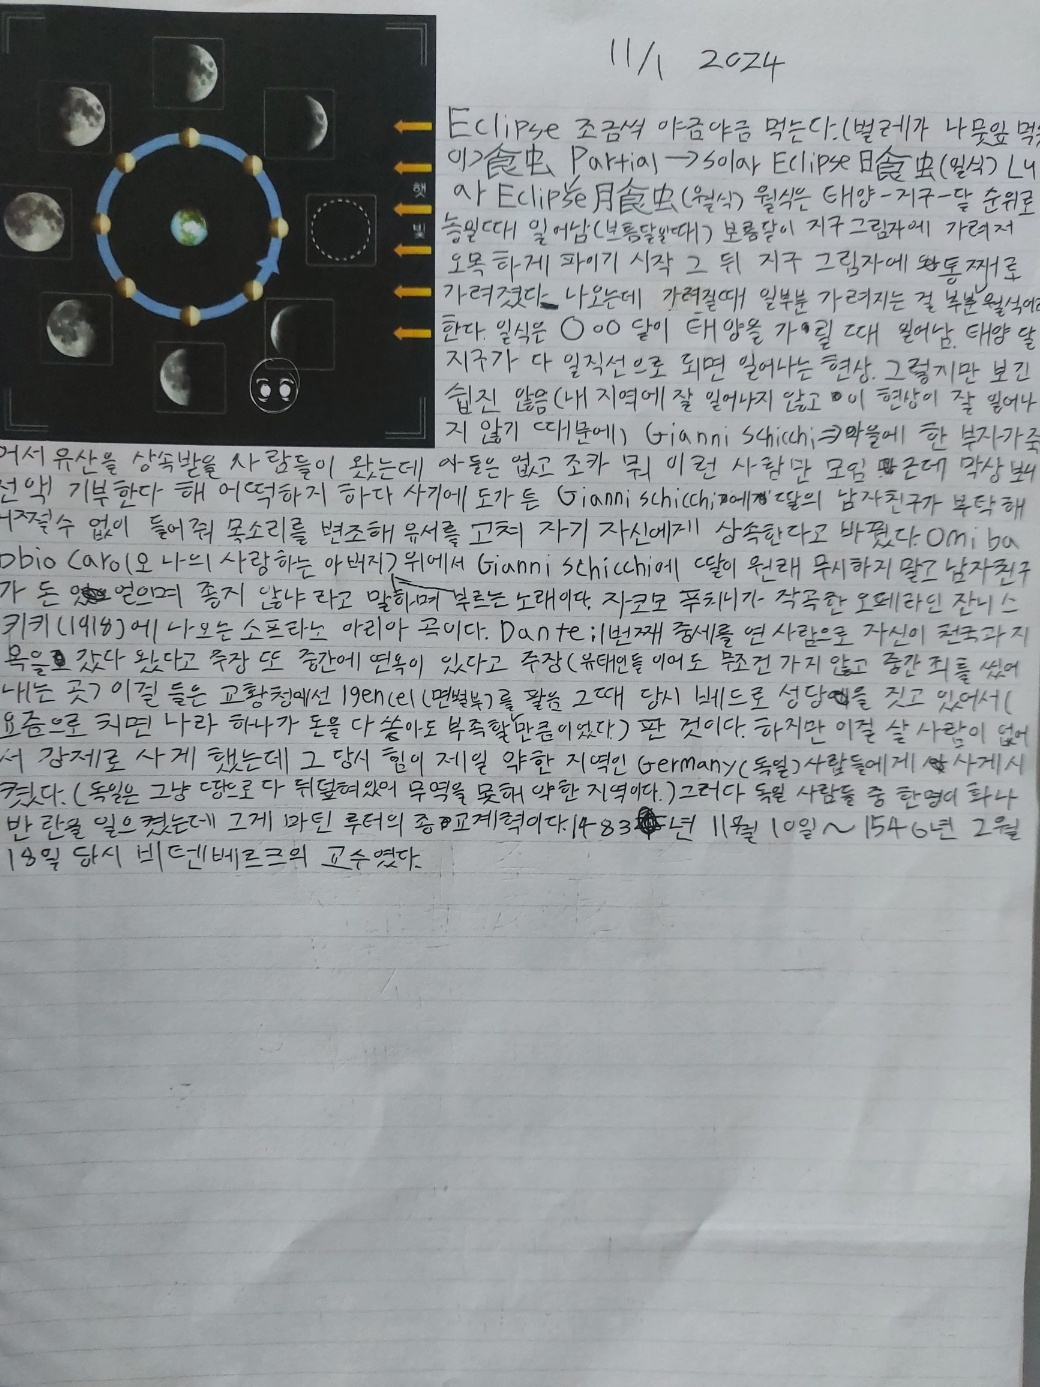 11/1 2024
햇빛
Eclipse 조금씩 야금야금 먹는다.(벌레가 나뭇잎 먹
이) 食虫 Partial → Solar Eclipse 日食虫(일식) Lu
ar Eclipse 月食虫(월식) 월식은 태양-지구-달 순위로
놓일때 일어남(보름달일때) 보름달이 지구그림자에 가려저
오목하게 파이기 시작 그 뒤 지구 그림자에 통째로
가려졌다 나오는데 가려질때 일부분 가려지는 걸 부분월식이라
한다. 일식은 ○○○ 달이 태양을 가릴 때 일어남. 태양 달
지구가 다 일직선으로 되면 일어나는 현상. 그렇지만 보긴
쉽진 않음(내 지역에 잘 일어나지 않고 이 현상이 잘 일어나
지 않기 때문에) Gianni Schicchi; 마을에 한 부자가 죽
어서 유산을 상속받을 사람들이 왔는데 아들은 없고 조카 뭐 이런 사람만 모임 근데 막상 보니
전액 기부한다 해 어떡하지 하다 사기에 도가 든 Gianni Schicchi에게 딸의 남자친구가 부탁해
어쩔수 없이 들어줘 목소리를 변조해 유서를 고쳐 자기 자신에게 상속한다고 바꿨다. Omi ba
bbio Caro(오 나의 사랑하는 아버지) 위에서 Gianni Schicchi에 딸이 원래 무시하지 말고 남자친구
가 돈 얻으며 좋지 않냐 라고 말하며 부르는 노래이다. 자코모 푸치니가 작곡한 오페라인 잔니 스
키키(1918)에 나오는 소프라노 아리아 곡이다. Dante; 1번째 중세를 연 사람으로 자신이 천국과 지
옥을 갔다 왔다고 주장 또 중간에 연옥이 있다고 주장(유태인들 이어도 무조건 가지 않고 중간 죄를 씼어
내는 곳) 이걸 들은 교황청에선 Igencel(면벌부)를 팔음 그때 당시 베드로 성당을 짓고 있어서(
요즘으로 치면 나라 하나가 돈을 다 쏟아도 부족할만큼이었다) 판 것이다. 하지만 이걸 살 사람이 없어
서 강제로 사게 했는데 그 당시 힘이 제일 약한 지역인 Germany(독일)사람들에게 사게시
켰다.(독일은 그냥 땅으로 다 뒤덮혀있어 무역을 못해 약한 지역이다.) 그러다 독일 사람들 중 한명이 화나
반란을 일으켰는데 그게 마틴 루터의 종교계력이다. 1483년 11월 10일~1546년 2월
18일 당시 비텐베르크의 교수였다.